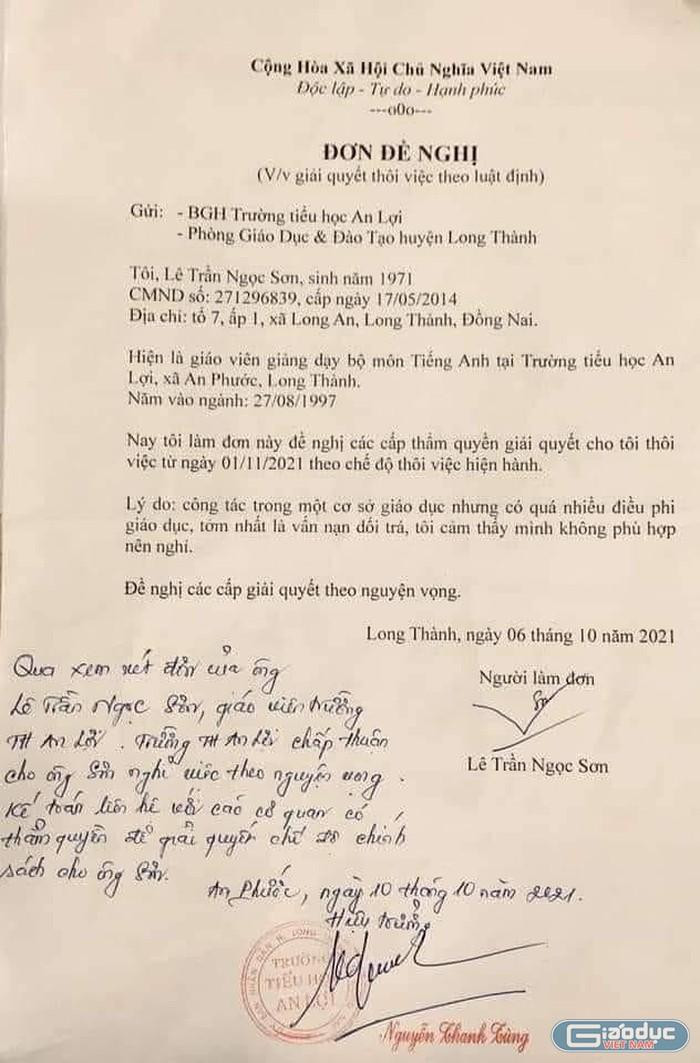 Cộng Hòa Xã Hội Chủ Nghĩa Việt Nam
Độc lập - Tự do - Hạnh phúc
---o0o---
ĐƠN ĐỀ NGHỊ
(V/v giải quyết thôi việc theo luật định)
Gửi: - BGH Trường tiểu học An Lợi
- Phòng Giáo Dục & Đào Tạo huyện Long Thành
Tôi, Lê Trần Ngọc Sơn, sinh năm 1971
CMND số: 271296839, cấp ngày 17/05/2014
Địa chỉ: tổ 7, ấp 1, xã Long An, Long Thành, Đồng Nai.
Hiện là giáo viên giảng dạy bộ môn Tiếng Anh tại Trường tiểu học An
Lợi, xã An Phước, Long Thành.
Năm vào ngành: 27/08/1997
Nay tôi làm đơn này đề nghị các cấp thẩm quyền giải quyết cho tôi thôi
việc từ ngày 01/11/2021 theo chế độ thôi việc hiện hành.
Lý do: công tác trong một cơ sở giáo dục nhưng có quá nhiều điều phi
giáo dục, tởm nhất là vấn nạn dối trá, tôi cảm thấy mình không phù hợp
nên nghỉ.
Đề nghị các cấp giải quyết theo nguyện vọng.
Long Thành, ngày 06 tháng 10 năm 2021
Người làm đơn
Lê Trần Ngọc Sơn
Qua xem xét đơn của ông
Lê Trần Ngọc Sơn, giáo viên trường
TH An Lợi. Trường TH An Lợi chấp thuận
cho ông Sơn nghỉ việc theo nguyện vọng.
Kế toán liên hệ với các cơ quan có
thẩm quyền để giải quyết chế độ chính
sách cho ông Sơn.
An Phước, ngày 10 tháng 10 năm 2021.
Hiệu trưởng
TRƯỜNG
TIỂU HỌC
AN LỢI
Nguyễn Thanh Tùng
Giáodục
VIỆT NAM